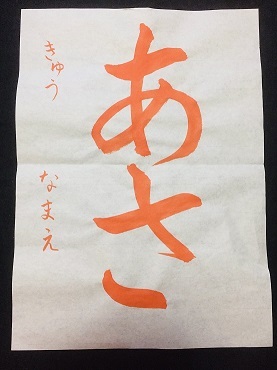 あさ
きゅう なまえ